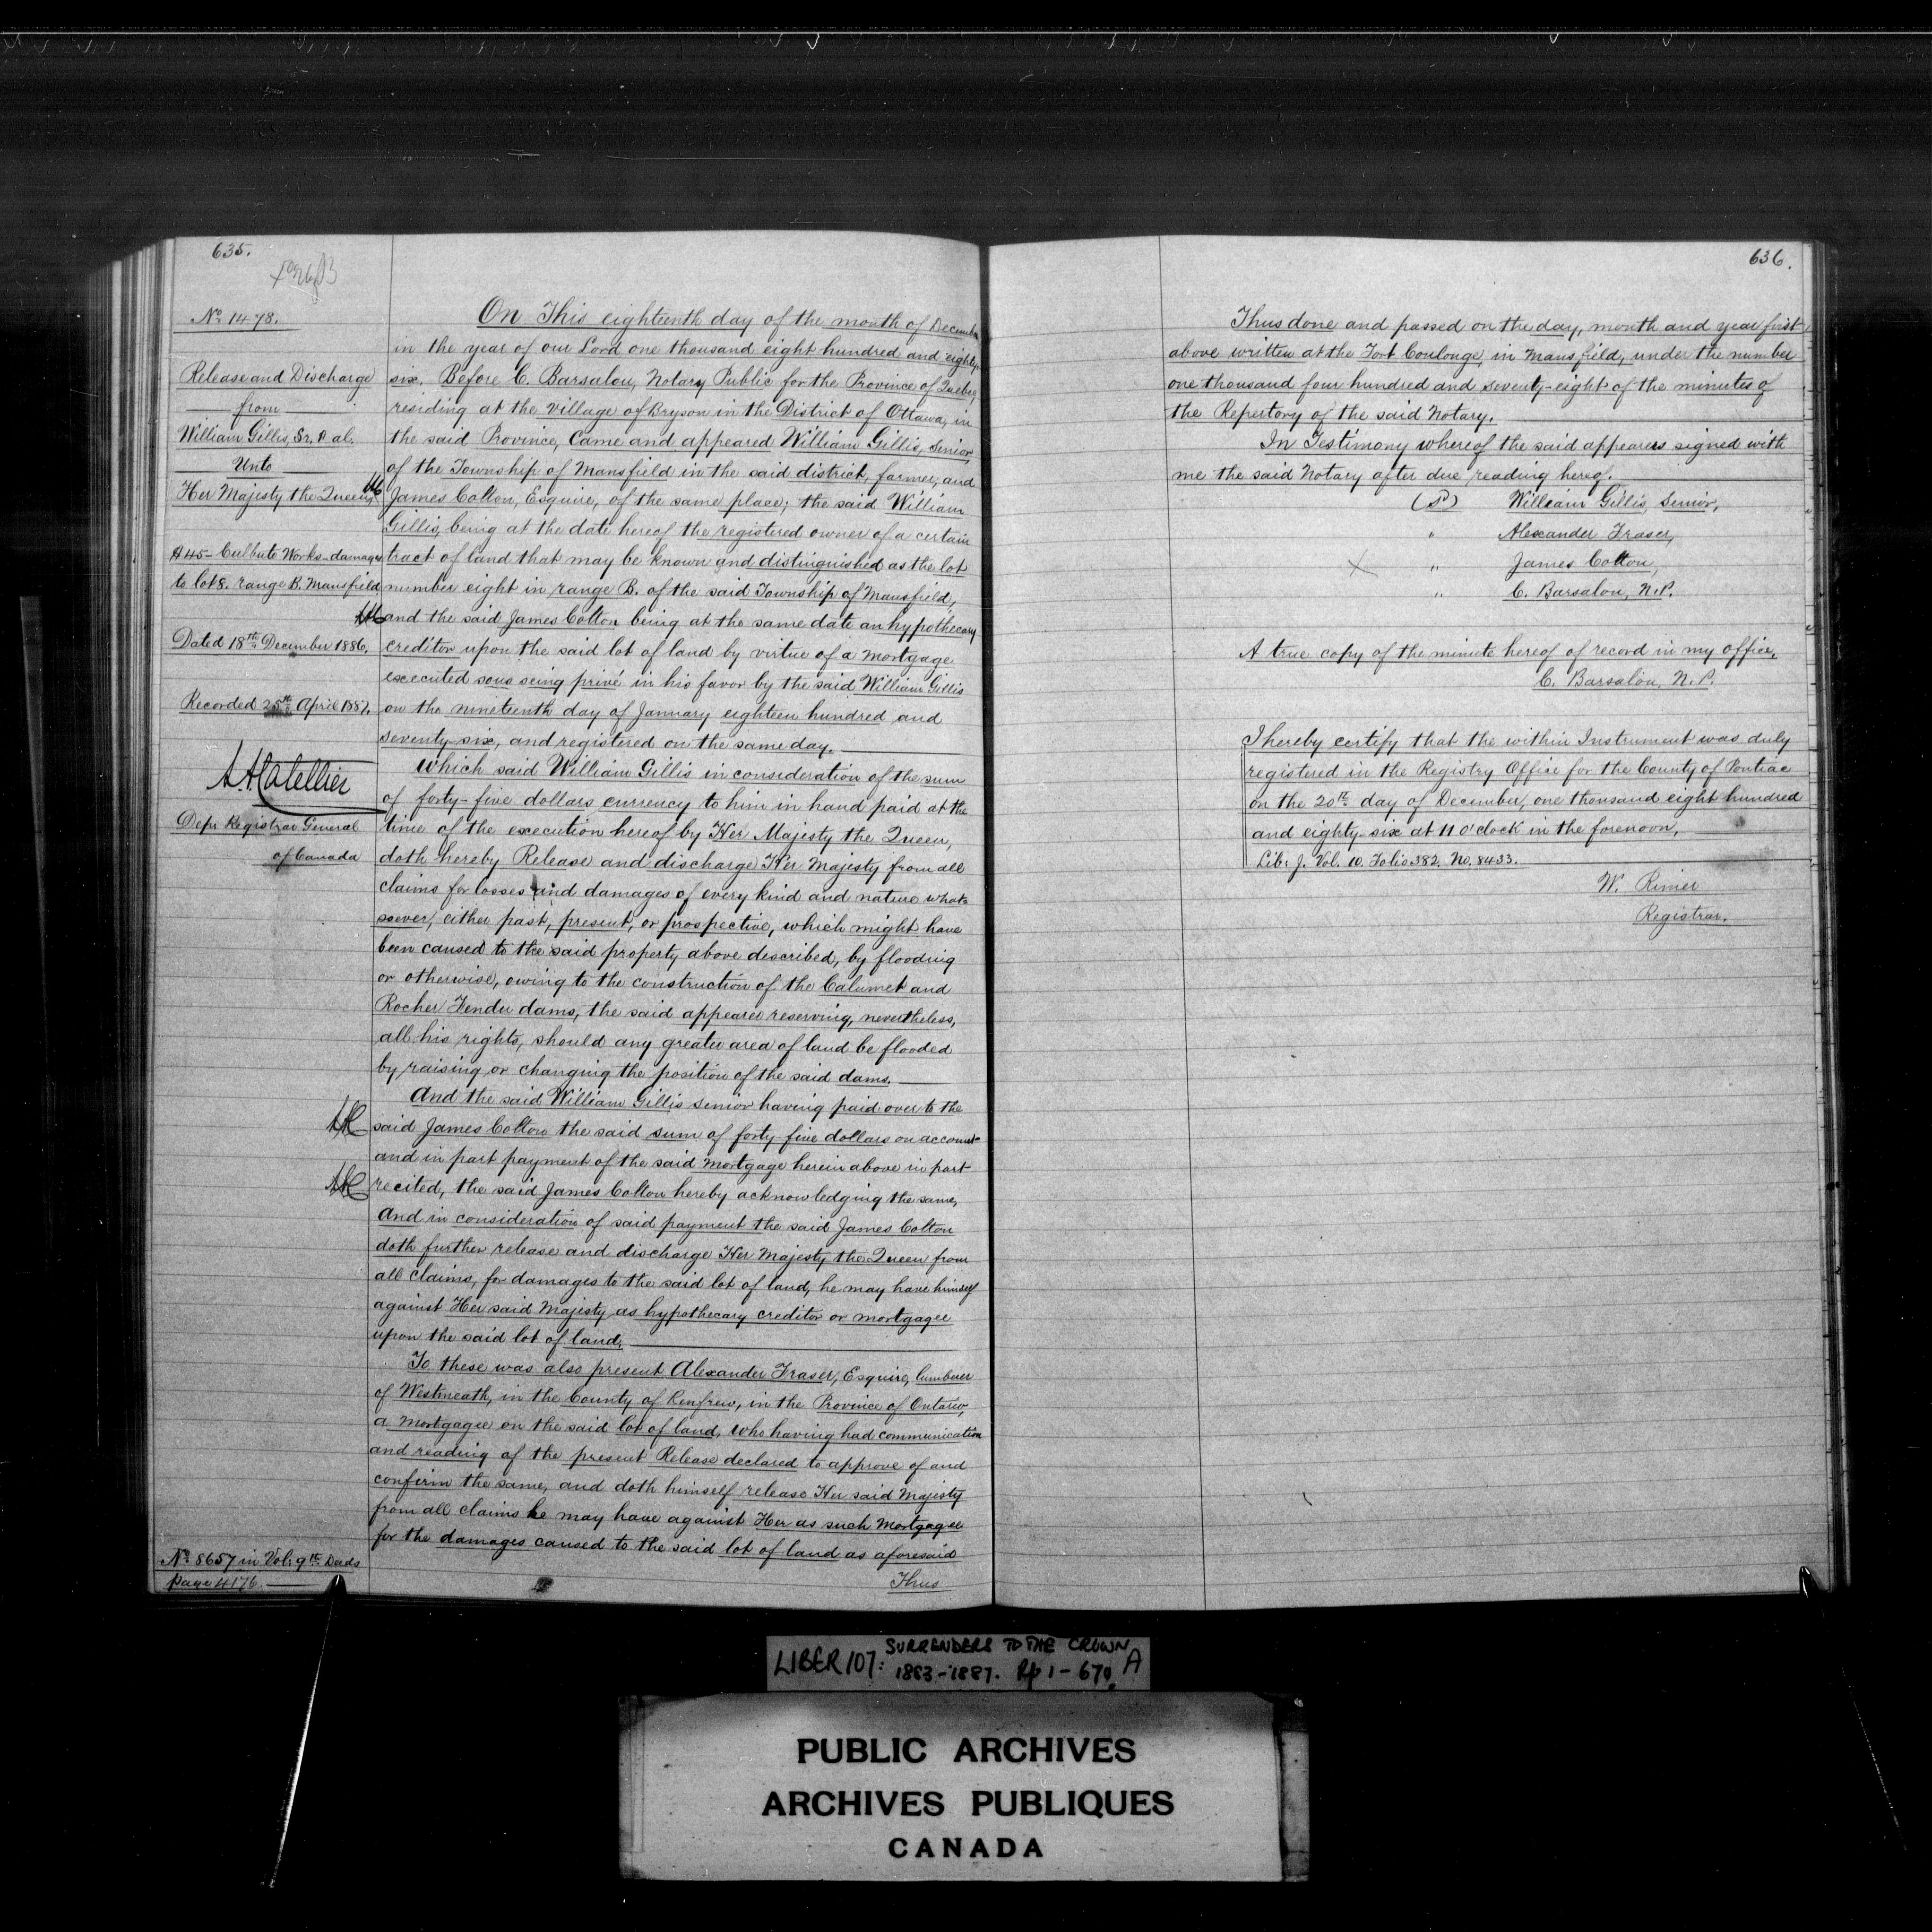 635.
No. 1478.
Release and Discharge
from
William Gillis, Sr. & al.
Unto
Her Majesty the Queen,
$45 - Culbute Works - damages
to lot 8. range B. Mansfield
Dated 18th December 1886.
Recorded 25th April 1887.
A. Catellier
Depy Registrar General
of Canada
No. 8657 in Vol: 9th Deeds
page 4176.
On This eighteenth day of the month of December
in the year of our Lord one thousand eight hundred and eighty-
six. Before C. Barsalou, Notary Public for the Province of Quebec
residing at the Village of Bryson in the District of Ottawa, in
the said Province, Came and appeared William Gillis, Senior,
of the Township of Mansfield in the said district, farmer, and
James Colton, Esquire, of the same place; the said William
Gillis, being at the date hereof the registered owner of a certain
tract of land that may be known and distinguished as the lot
number eight in range B. of the said Township of Mansfield,
and the said James Colton being at the same date an hypothecary
creditor upon the said lot of land by virtue of a Mortgage
executed sous seing privé in his favor by the said William Gillis
on the nineteenth day of January eighteen hundred and
seventy-six, and registered on the same day.
Which said William Gillis in consideration of the sum
of forty-five dollars currency to him in hand paid at the
time of the execution hereof by Her Majesty the Queen,
doth hereby Release and discharge Her Majesty from all
claims for losses and damages of every kind and nature what-
soever, either past, present, or prospective, which might have
been caused to the said property above described, by flooding
or otherwise, owing to the construction of the Calumet and
Rocher Fendu dams, the said appearer reserving, nevertheless,
all his rights, should any greater area of land be flooded
by raising or changing the position of the said dams.
And the said William Gillis senior having paid over to the
said James Colton the said sum of forty-five dollars on account
and in part payment of the said Mortgage herein above in part
recited, the said James Colton hereby acknowledging the same,
And in consideration of said payment the said James Colton
doth further release and discharge Her Majesty the Queen from
all claims, for damages to the said lot of land, he may have himself
against Her said Majesty as hypothecary creditor or mortgagee
upon the said lot of land.
To these was also present Alexander Fraser, Esquire, lumberer
of Westmeath, in the County of Renfrew, in the Province of Ontario,
a Mortgagee on the said lot of land, who having had communication
and reading of the present Release declared to approve of and
confirm the same, and doth himself release Her said Majesty
from all claims he may have against Her as such Mortgagee
for the damages caused to the said lot of land as aforesaid
Thus
636.
Thus done and passed on the day, month and year first
above written at the Fort Coulonge, in Mansfield, under the number
one thousand four hundred and seventy-eight of the minutes of
the Repertory of the said Notary.
In Testimony whereof the said appearers signed with
me the said Notary after due reading hereof.
(S) William Gillis, Senior,
" Alexander Fraser,
" James Colton,
" C. Barsalou, N.P.
A true copy of the minute hereof of record in my office,
C. Barsalou, N.P.
I hereby certify that the within Instrument was duly
registered in the Registry Office for the County of Pontiac
on the 20th day of December, one thousand eight hundred
and eighty-six at 11 o'clock in the forenoon,
Lib: J. Vol. 10. Folio 382. No. 8433.
W. Rimer
Registrar.
LIBER 107: SURRENDERS TO THE CROWN
1883-1887. Pp 1-670, A
PUBLIC ARCHIVES
ARCHIVES PUBLIQUES
CANADA